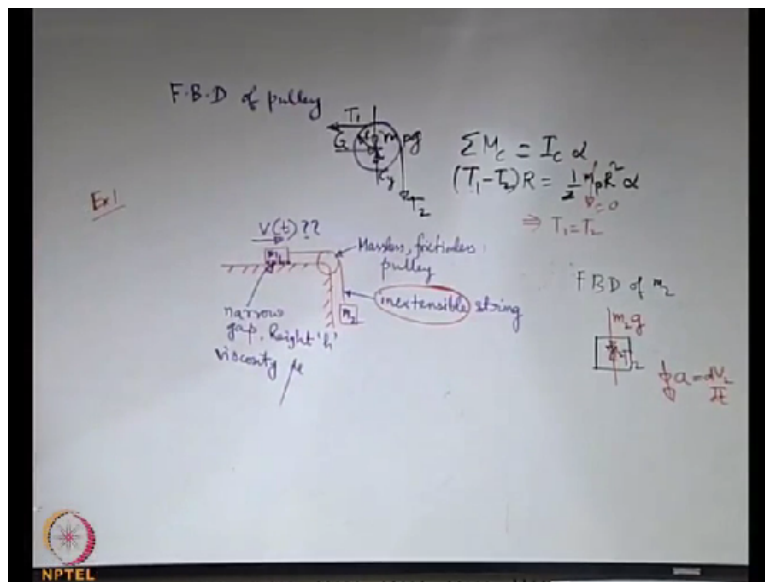 F.B.D of pulley
T₁
mpg
Cy
T₂
ΣM_C = I_C α
(T₁-T₂)R = ½ m_p R² α
=0
⇒ T₁=T₂
Ex1
V(t)??
m₁
Massless, frictionless
pulley
inextensible string
m₂
narrow
gap, height 'h'
viscosity μ
FBD of m₂
m₂g
T₂
a = dV₂/dt
NPTEL